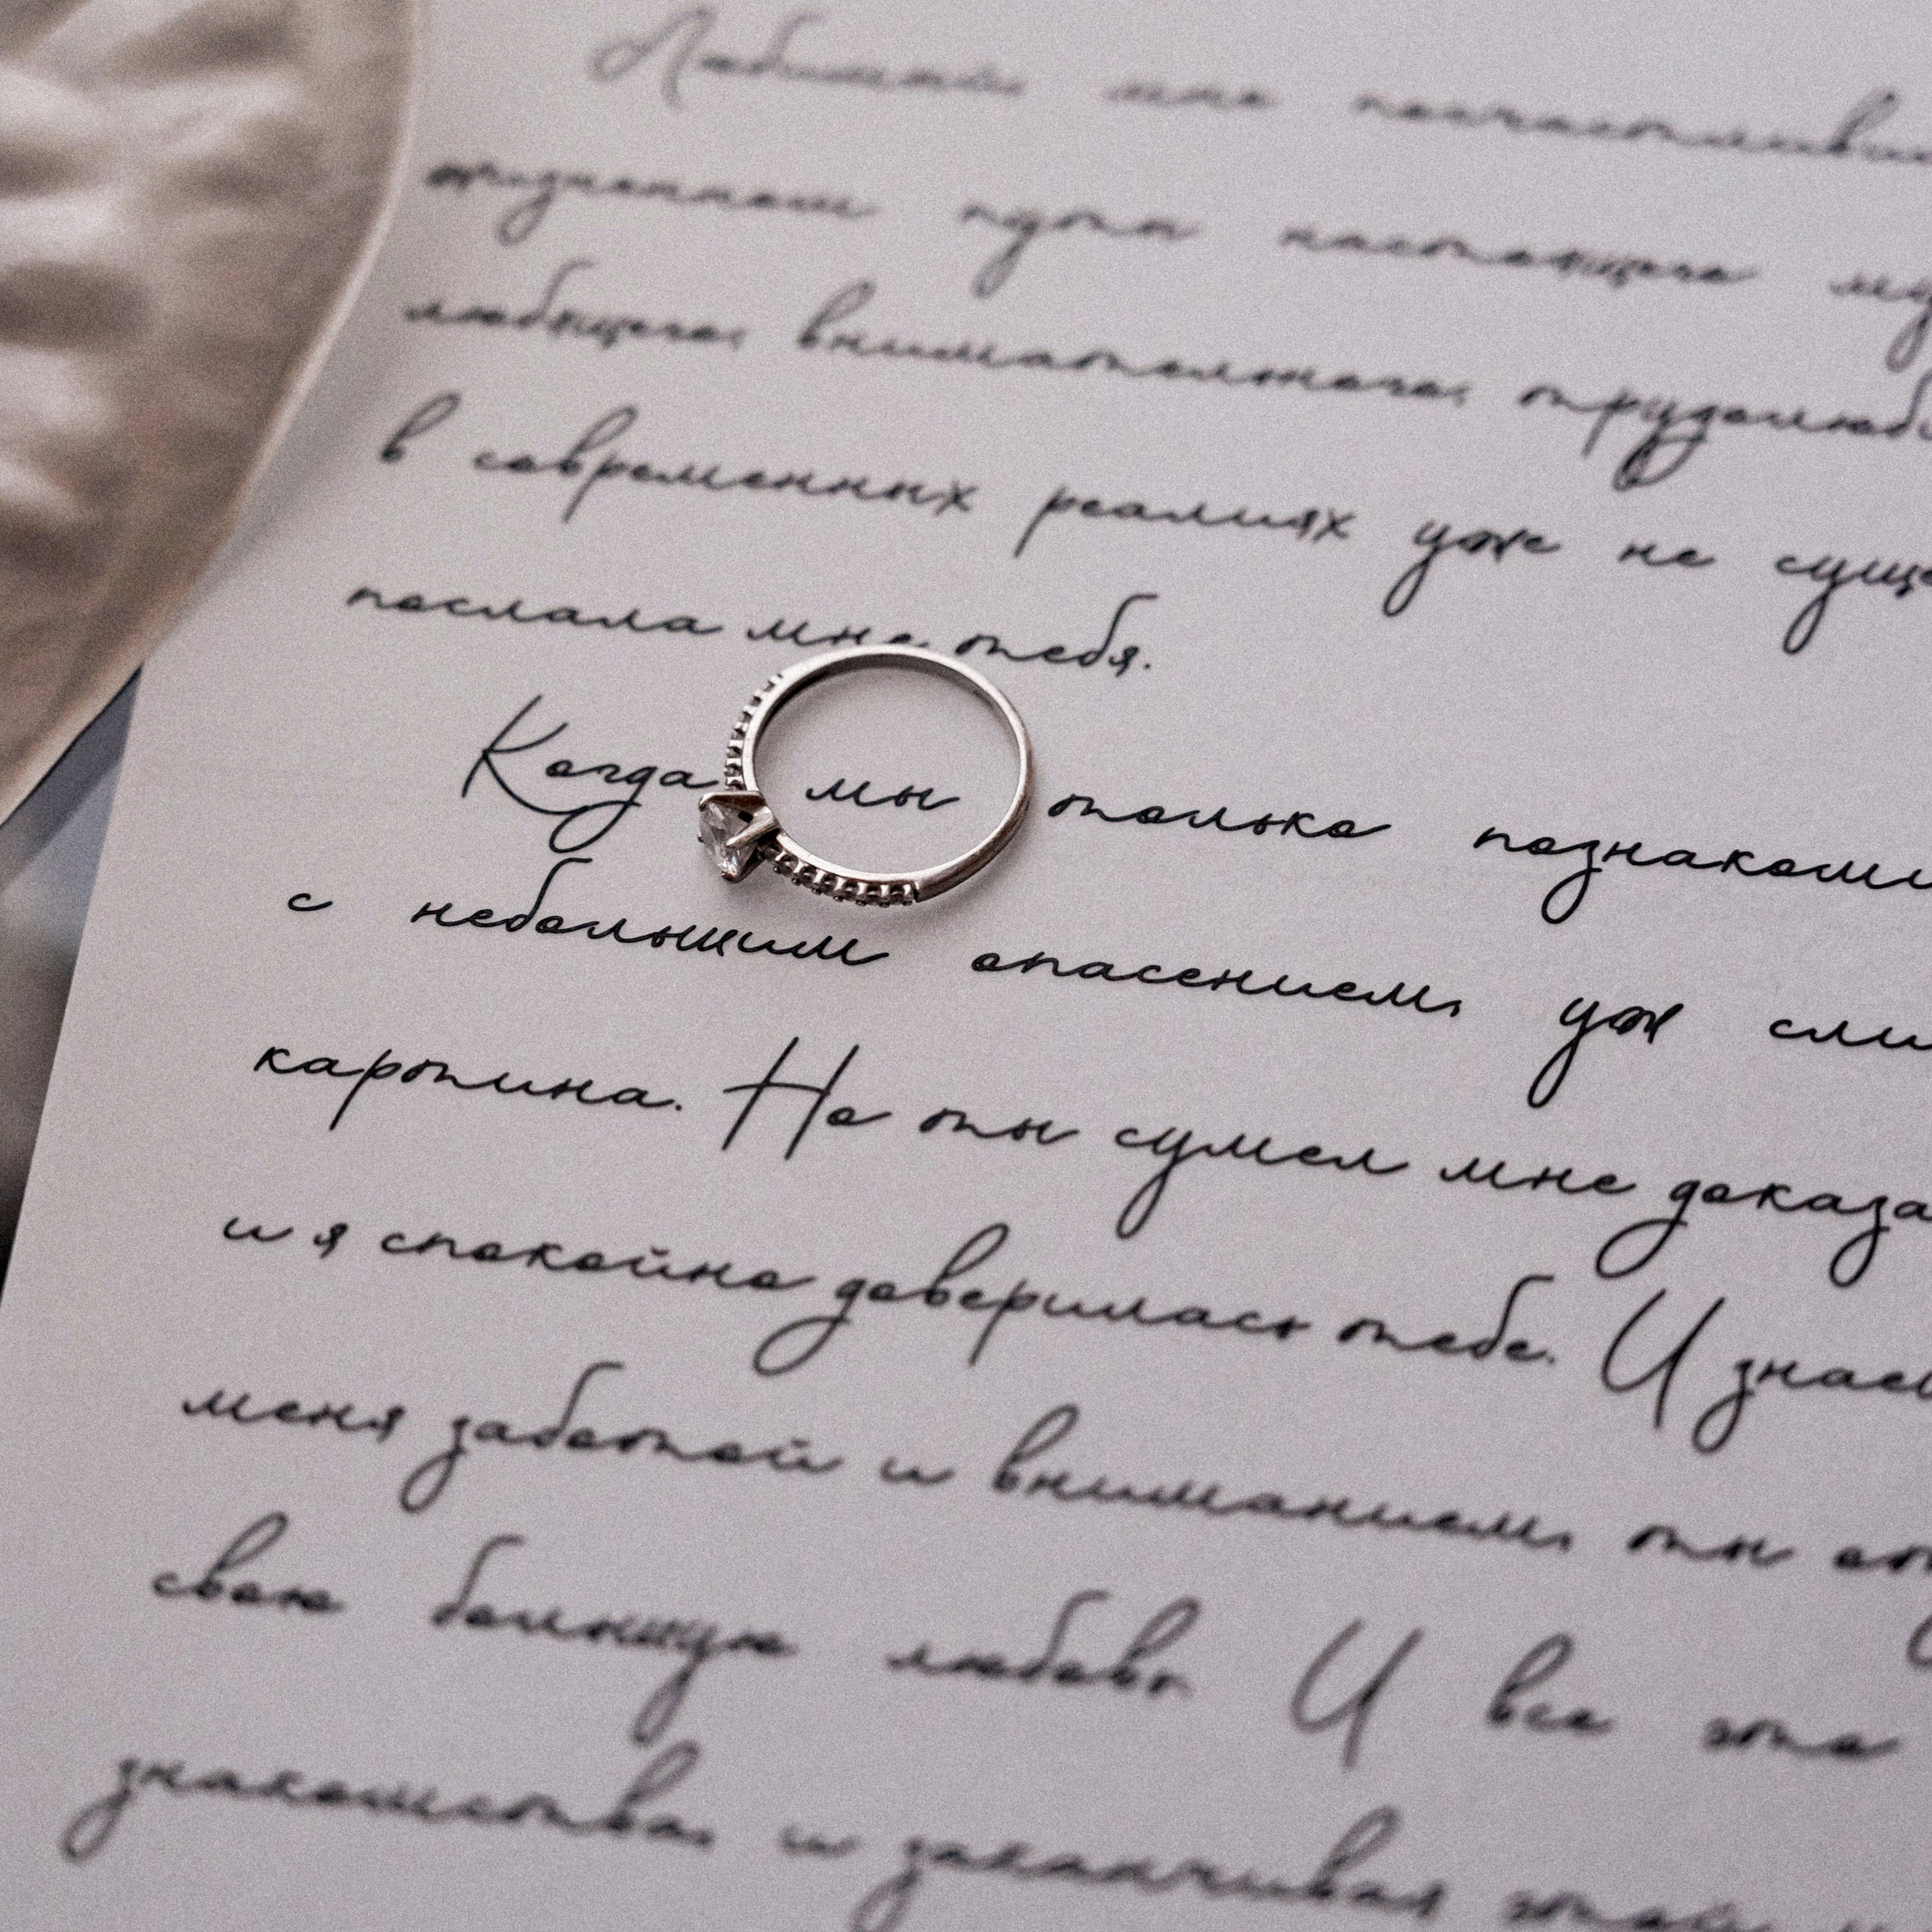 Любимый мне посчастливи
жизненном пути настоящего му
любящего, внимательного, трудолюб
в современных реалиях уже не суще
послала мне тебя.
Когда мы только познакоми
с небольшим опасением, уж сли
картина. Но ты сумел мне доказа
и я спокойно доверилась тебе. И знае
меня заботой и вниманием, ты от
свою большую любовь. И все это
знакомства, и заканчивая этой